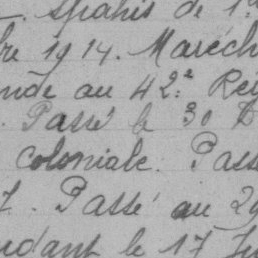 . Spahis de 1
bre 1914. Maréch
nde au 42e Rég
. Passé le 30 D
coloniale. Pass
7. Passé au 29
ndant le 17 Ju